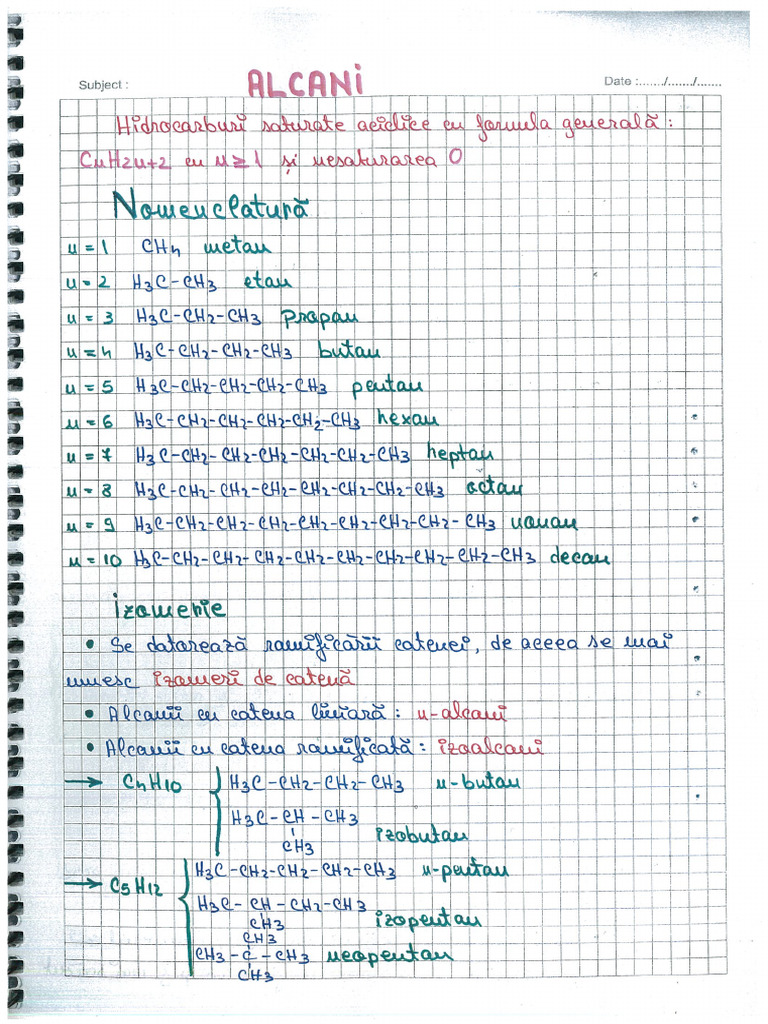 Subject :
ALCANi
Date :......./......./.......
Hidrocarburi saturate aciclice cu formula generală :
CnH2n+2 cu n ≥ 1 și nesaturarea 0
Nomenclatură
n = 1 CH4 metan
n = 2 H3C-CH3 etan
n = 3 H3C-CH2-CH3 propan
n = 4 H3C-CH2-CH2-CH3 butan
n = 5 H3C-CH2-CH2-CH2-CH3 pentan
n = 6 H3C-CH2-CH2-CH2-CH2-CH3 hexan
n = 7 H3C-CH2-CH2-CH2-CH2-CH2-CH3 heptan
n = 8 H3C-CH2-CH2-CH2-CH2-CH2-CH2-CH3 octan
n = 9 H3C-CH2-CH2-CH2-CH2-CH2-CH2-CH2-CH3 nonan
n = 10 H3C-CH2-CH2-CH2-CH2-CH2-CH2-CH2-CH2-CH3 decan
izomerie
• Se datorează ramificării catenei, de aceea se mai
numesc izomeri de catenă
• Alcanii cu catena liniară : n-alcani
• Alcanii cu catena ramificată : izoalcani
→ C4H10 { H3C-CH2-CH2-CH3 n-butan
H3C-CH-CH3
izobutan
CH3
→ C5H12 { H3C-CH2-CH2-CH2-CH3 n-pentan
H3C-CH-CH2-CH3
CH3 izopentan
CH3
CH3-C-CH3 neopentan
CH3